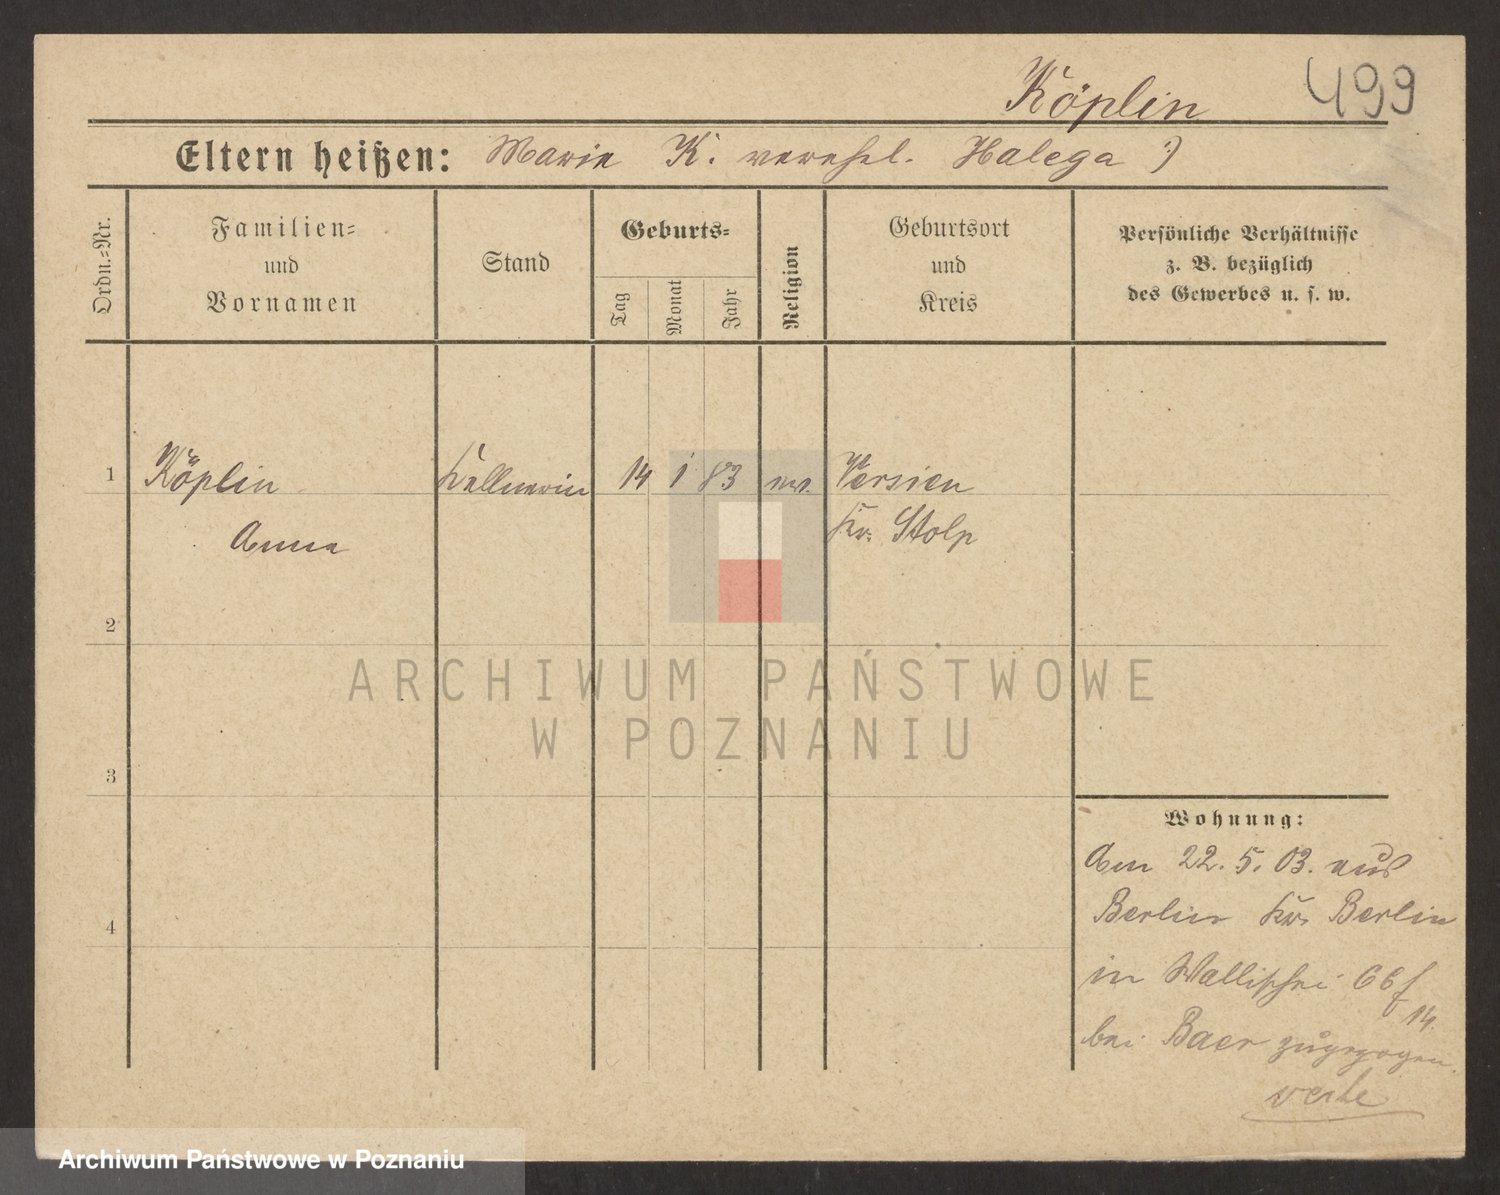 Köplin 499
Eltern heißen: Marie K. verehel. Halega :)
Ordn.-Nr.
Familien-
und
Vornamen
Stand
Geburts-
Tag
Monat
Jahr
Religion
Geburtsort
und
Kreis
Persönliche Verhältnisse
z. B. bezüglich
des Gewerbes u. s. w.
1 Köplin Kellnerin 14 1 83 ev. Versien
Anna Kr. Stolp
2
ARCHIWUM PAŃSTWOWE
W POZNANIU
3
Wohnung:
Am 22. 5. 03. aus
Berlin Kr. Berlin
4
in Wallischei 66
14.
bei Baer zugezogen.
Archiwum Państwowe w Poznaniu